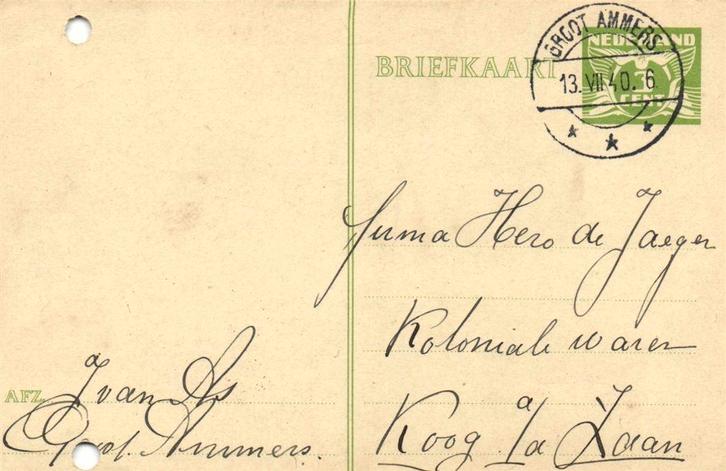 GROOT AMMERS
13.VII 40. 6
NEDERLAND
3
CENT
BRIEFKAART
Firma Hero de Jaeger
Koloniale waren
Koog a/d Zaan
AFZ.
J van As
Groot Ammers.